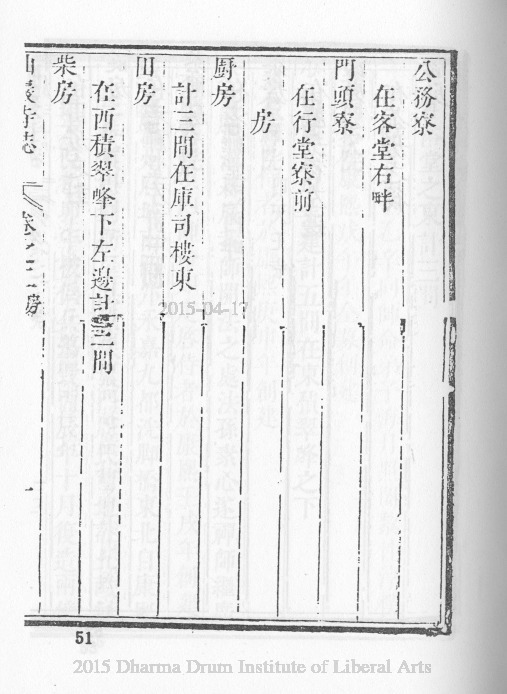 公務寮
在客堂右畔
門頭寮
在行堂寮前
房
廚房
計三間在庫司樓東
田房
在西積翠峰下左邊計三間
柴房
寺志 卷之二 房
一
51
2015-04-17
2015 Dharma Drum Institute of Liberal Arts